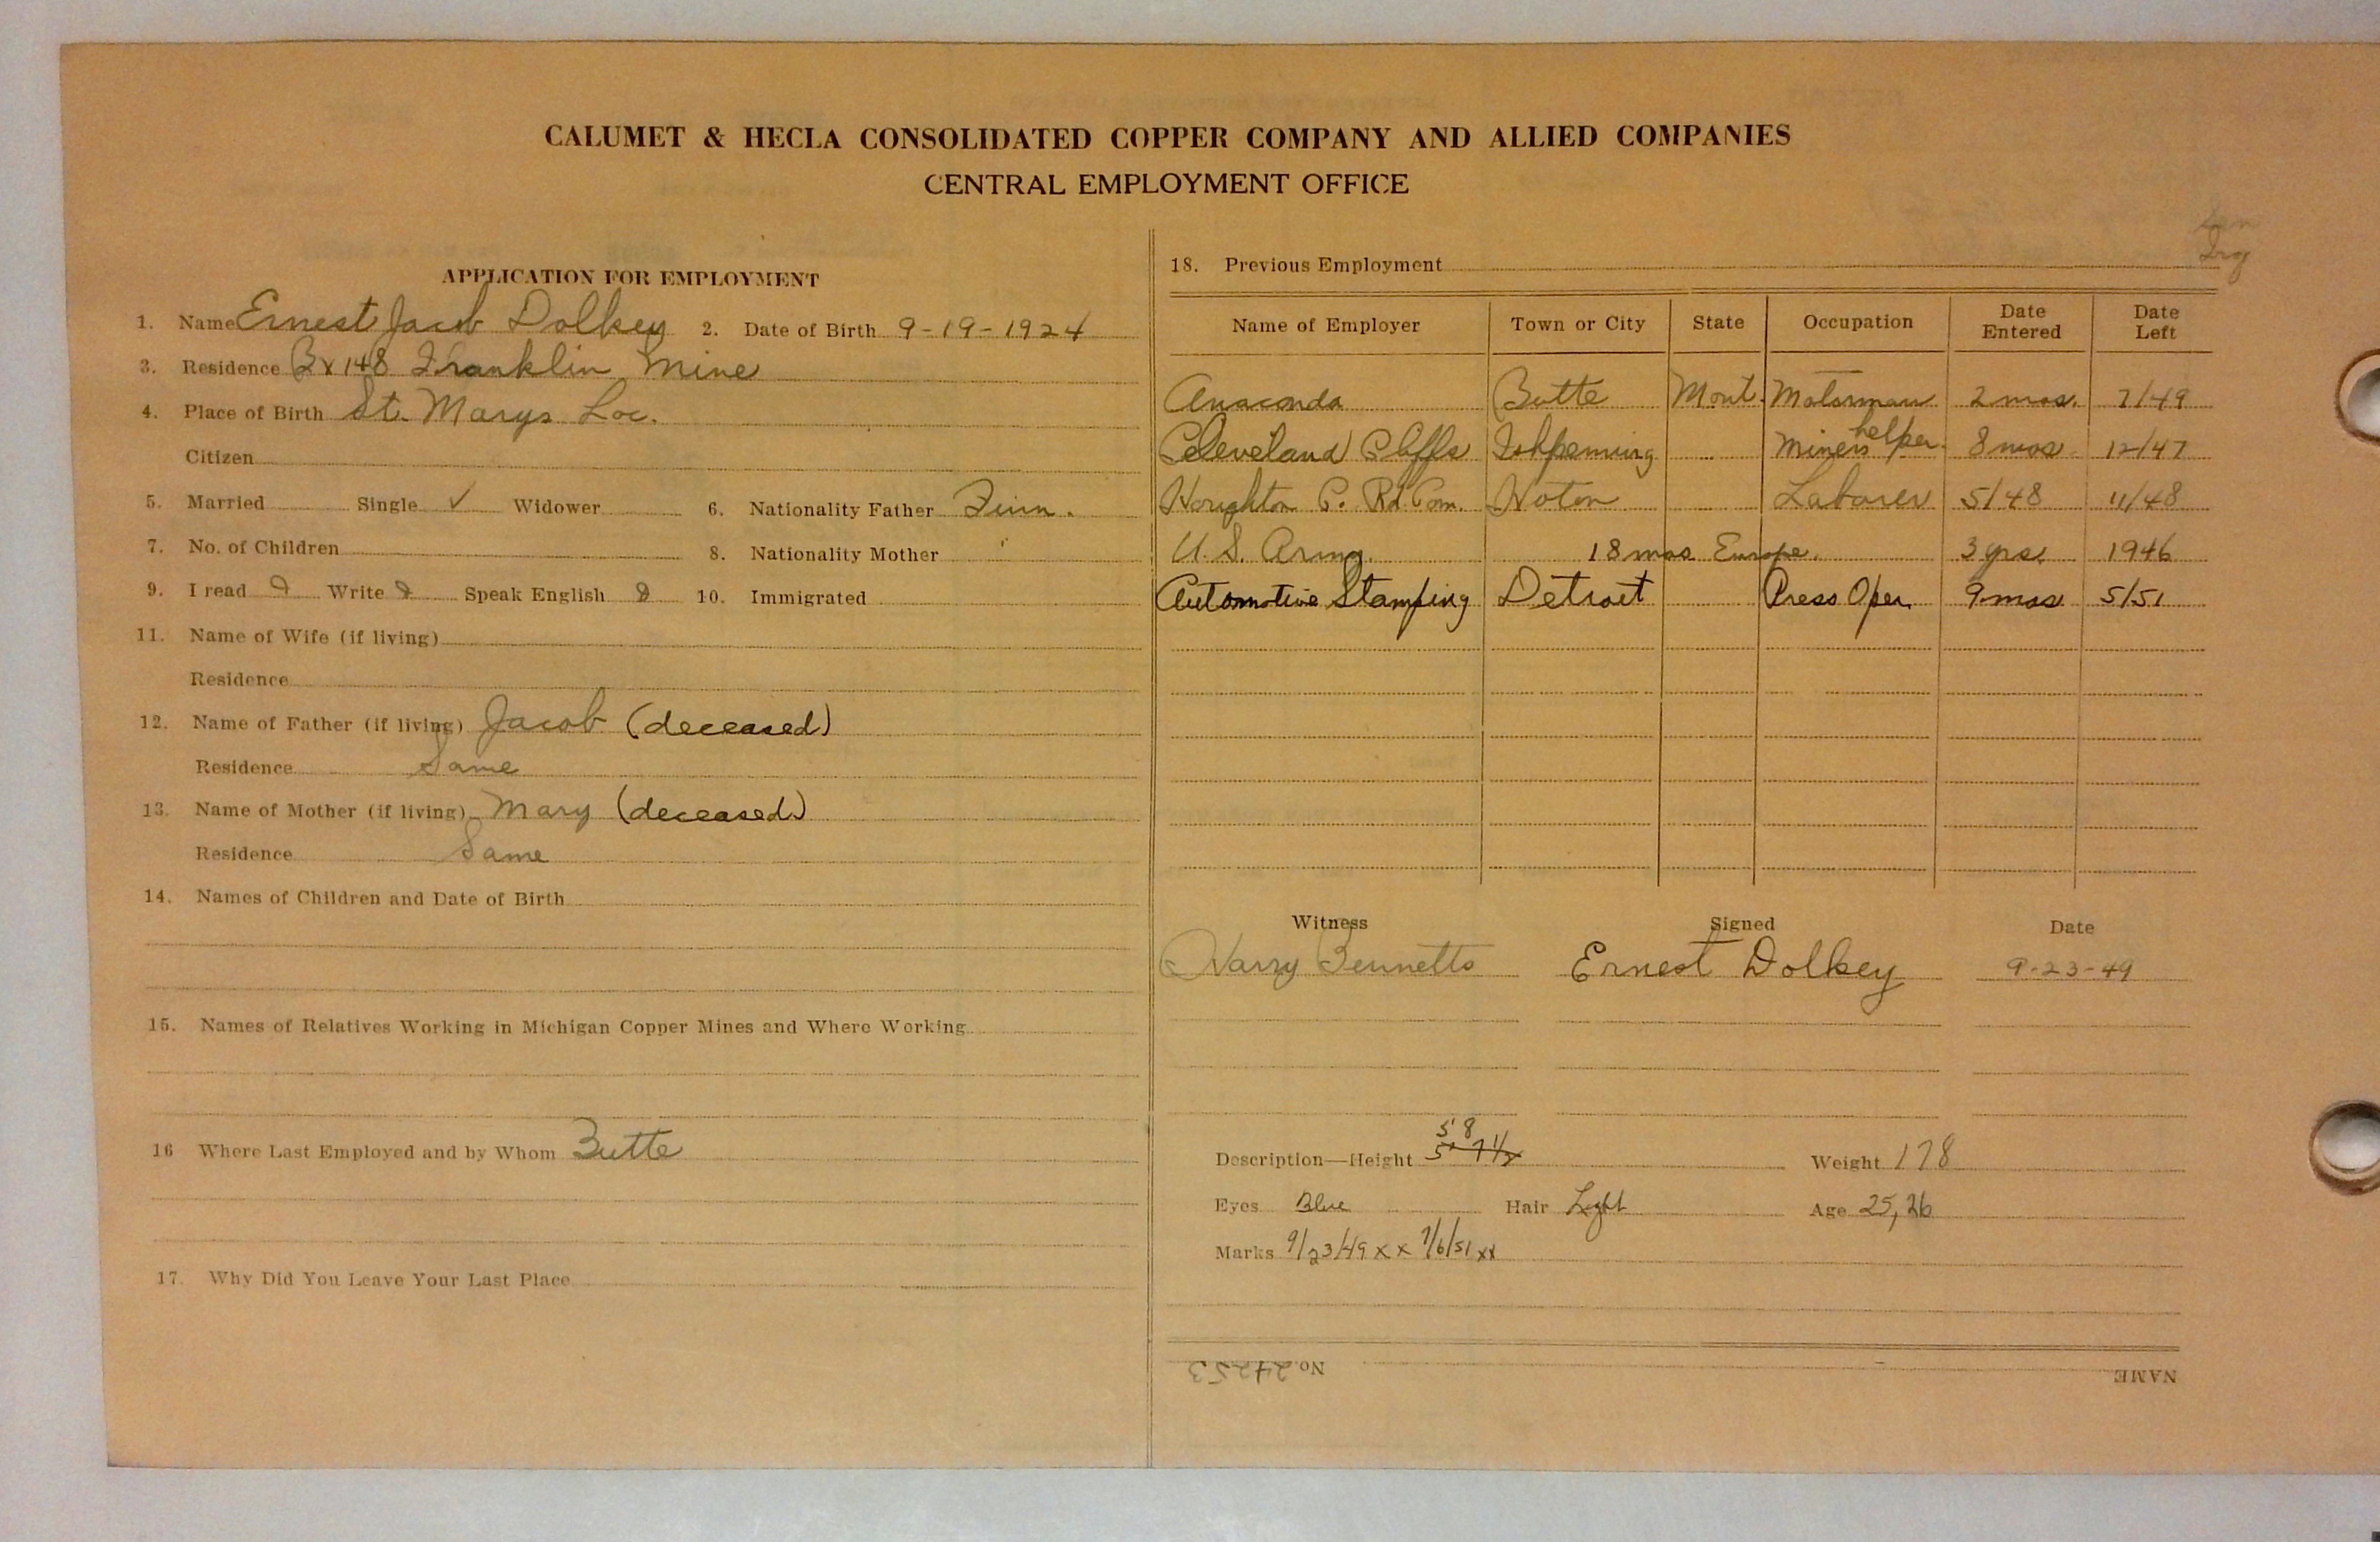 CALUMET & HECLA CONSOLIDATED COPPER COMPANY AND ALLIED COMPANIES
CENTRAL EMPLOYMENT OFFICE
APPLICATION FOR EMPLOYMENT
1. Name Ernest Jacob Dolkey 2. Date of Birth 9-19-1924
3. Residence Bx 148 Franklin Mine
4. Place of Birth St. Marys Loc.
Citizen
5. Married Single ✓ Widower 6. Nationality Father Finn.
7. No. of Children 8. Nationality Mother
9. I read Write Speak English 10. Immigrated
11. Name of Wife (if living)
Residence
12. Name of Father (if living) Jacob (deceased)
Residence Same
13. Name of Mother (if living) Mary (deceased)
Residence Same
14. Names of Children and Date of Birth
15. Names of Relatives Working in Michigan Copper Mines and Where Working
16 Where Last Employed and by Whom Butte
17. Why Did You Leave Your Last Place
18. Previous Employment
Name of Employer Town or City State Occupation Date Entered Date Left
Anaconda Butte Mont. Motorman 2 mos. 7/49
Cleveland Cliffs Ishpeming Miners helper 8 mos 12/47
Houghton C. Rd Com. Hoton Laborer 5/48 11/48
U.S. Army 18 mos Europe. 3 yrs. 1946
Automotive Stamping Detroit Press Oper. 9 mos 5/51
Witness Signed Date
Harry Bennetts Ernest Dolkey 9-23-49
5' 8
Description—Height 5' 7 1/2 Weight 178
Eyes Blue Hair Light Age 25, 26
Marks 9/23/49 x x 7/6/51 xx
NAME No. 24253